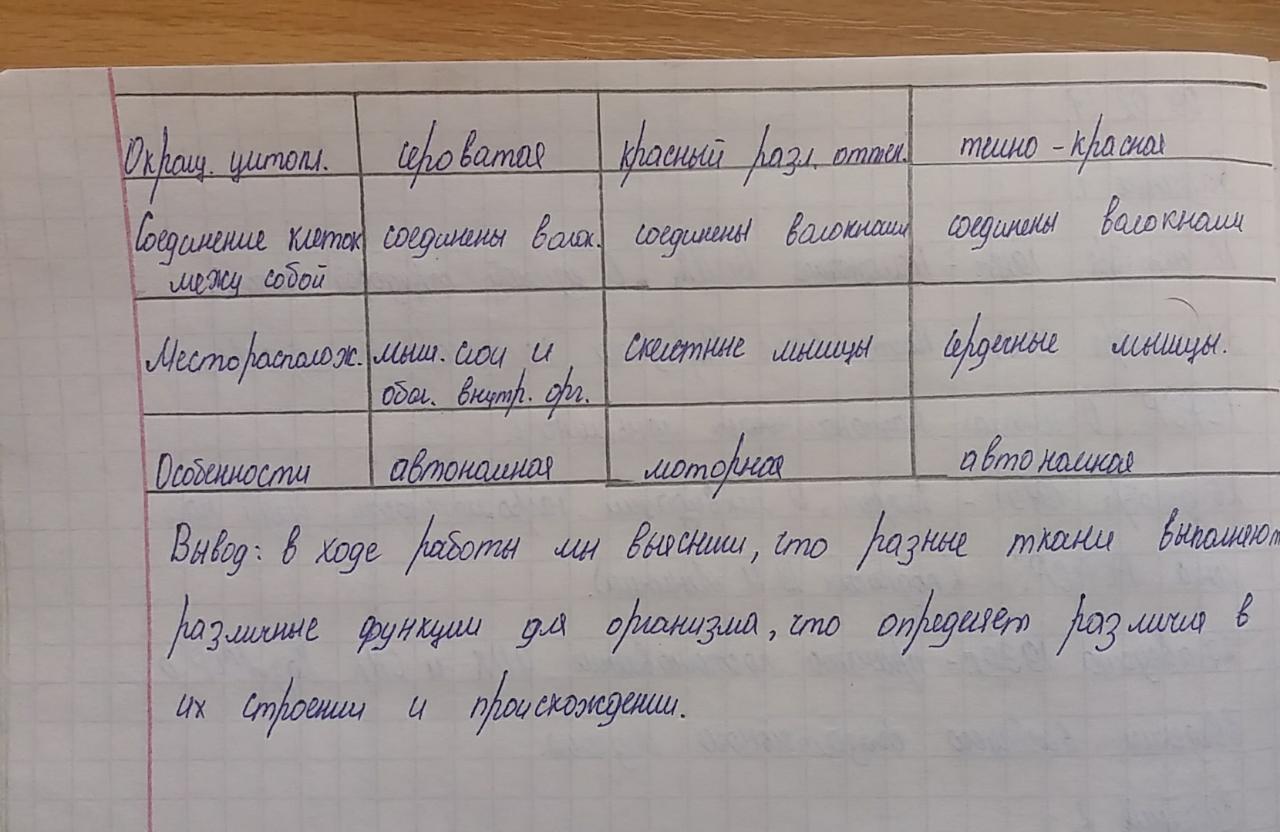 Окраш. цитопл. сероватая красный разл. оттен. темно - красная
Соединение клеток соединены волок. соединены волокнами соединены волокнами
межу собой
Месторасполож. мыш. слои и скелетные мышцы сердечные мышцы.
обол. внутр. орг.
Особенности автономная моторная автономная
Вывод: в ходе работы мы выяснили, что разные ткани выполняют
различные функции для организма, что определяет различия в
их строении и происхождении.